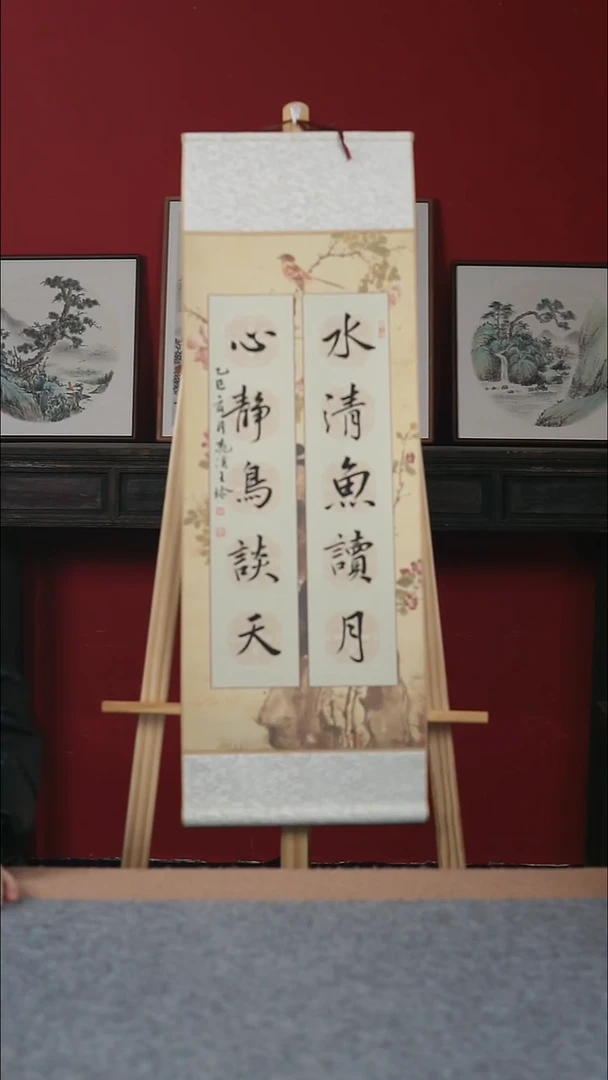 水清魚讀月
心靜鳥談天
乙巳